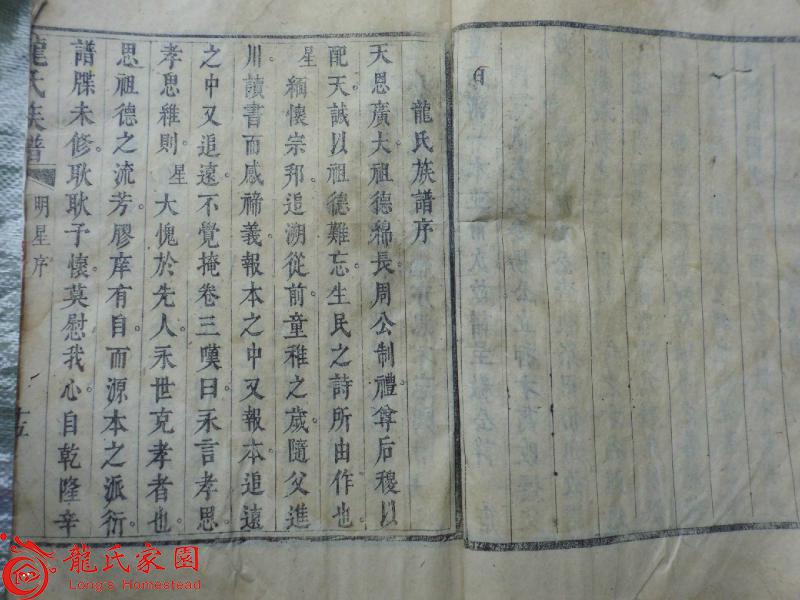 龍氏族譜序
天恩廣大。祖德綿長。周公制禮尊后稷以
配天。誠以祖德難忘。生民之詩所由作也。
星緬懷宗邦。追溯從前。童稚之歲。隨父進
川。讀書而感禘義。報本之中又報本。追遠
之中又追遠。不覺掩卷三嘆曰。永言孝思。
孝思維則。星大愧於先人。永世克孝者也。
思祖德之流芳。膠庠有自。而源本之派衍。
譜牒未修。耿耿予懷。莫慰我心。自乾隆辛
龍氏族譜
明星序
十五
龍氏家園
Long's Homestead